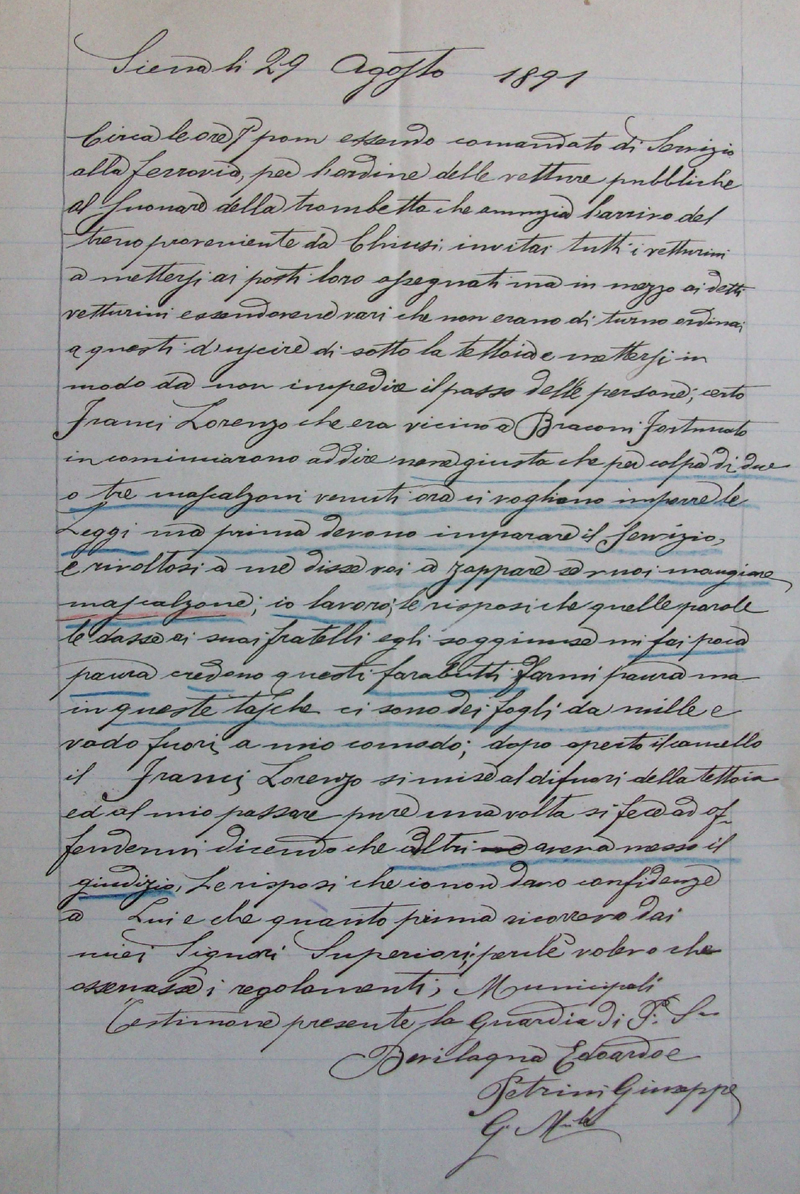 Siena li 29 Agosto 1891
Circa le ore 7 pom essendo comandato di Servizio
alla ferrovia, per l'ordine delle vetture pubbliche
al Suonare della trombetta che anunzia l'arrivo del
treno proveniente da Chiusi, invitai tutti i vetturini
a mettersi ai posti loro assegnati ma in mezzo ai detti
vetturini essendovene vari che non erano di turno ordinai
a questi d'uscire di sotto la tettoia e mettersi in
modo da non impedire il passo delle persone; certo
Franci Lorenzo che era vicino a Braconi Fortunato
incominciarono addire non e giusto che per colpa di due
o tre mascalzoni venuti ora ci vogliono imporre le
Leggi ma prima devono imparare il Servizio,
e rivoltosi a me disse vai a zappare se vuoi mangiare
mascalzone; io lavoro; le risposi che quelle parole
le dasse ai suoi fratelli egli soggiunse mi fai poca
paura credono questi farabutti farmi paura ma
in queste tasche ci sono dei fogli da mille e
vado fuori a mio comodo; dopo aperto il cancello
il Franci Lorenzo si mise al difuori della tettoia
ed al mio passare pure una volta si fece ad of-
fendermi dicendo che altri aveva messo il
giudizio, Le risposi che io non davo confidenze
a Lui e che quanto prima ricorrevo dai
miei Signori Superiori; perche volevo che
osservasse i regolamenti; Municipali
Testimone presente la Guardia di P. S.
Bevilaqua Edoardo e
Petrini Giuseppe
G. M.le